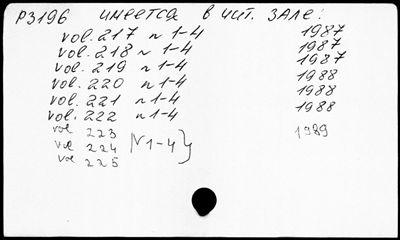 P3196 имеется в чит. зале:
vol. 217 n 1-4 1987
vol. 218 n 1-4 1987
vol. 219 n 1-4 1987
vol. 220 n 1-4 1988
vol. 221 n 1-4 1988
vol. 222 n 1-4 1988
vol 223 1989
vol 224 N 1-4 }
vol 225